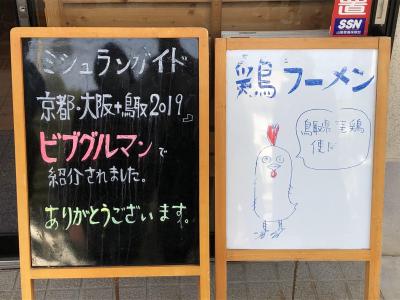 ミシュランガイド
京都・大阪+鳥取2019』
ビブグルマンで
紹介されました。
ありがとうございます。
鶏ラーメン
鳥取県
鶏
使
置
SSN